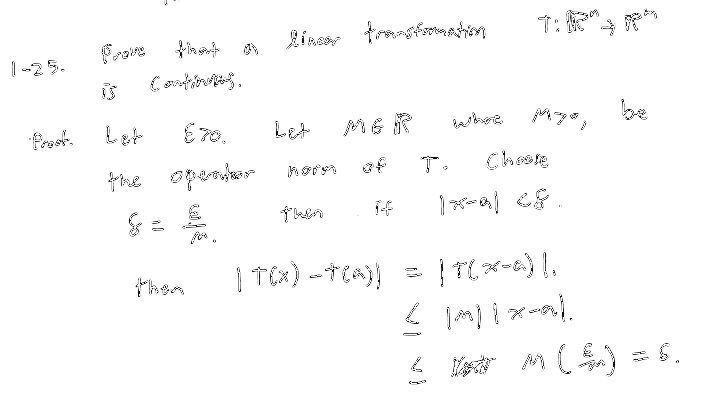 1-25. Prove that a linear transformation T: ℝⁿ → ℝᵐ
is continuous.
Proof. Let ε>0. Let M ∈ ℝ where M>0, be
the operator norm of T. Choose
δ = ε/M. then if |x-a| < δ.
then |T(x) - T(a)| = |T(x-a)|.
≤ |M| |x-a|.
≤ M (ε/M) = ε.